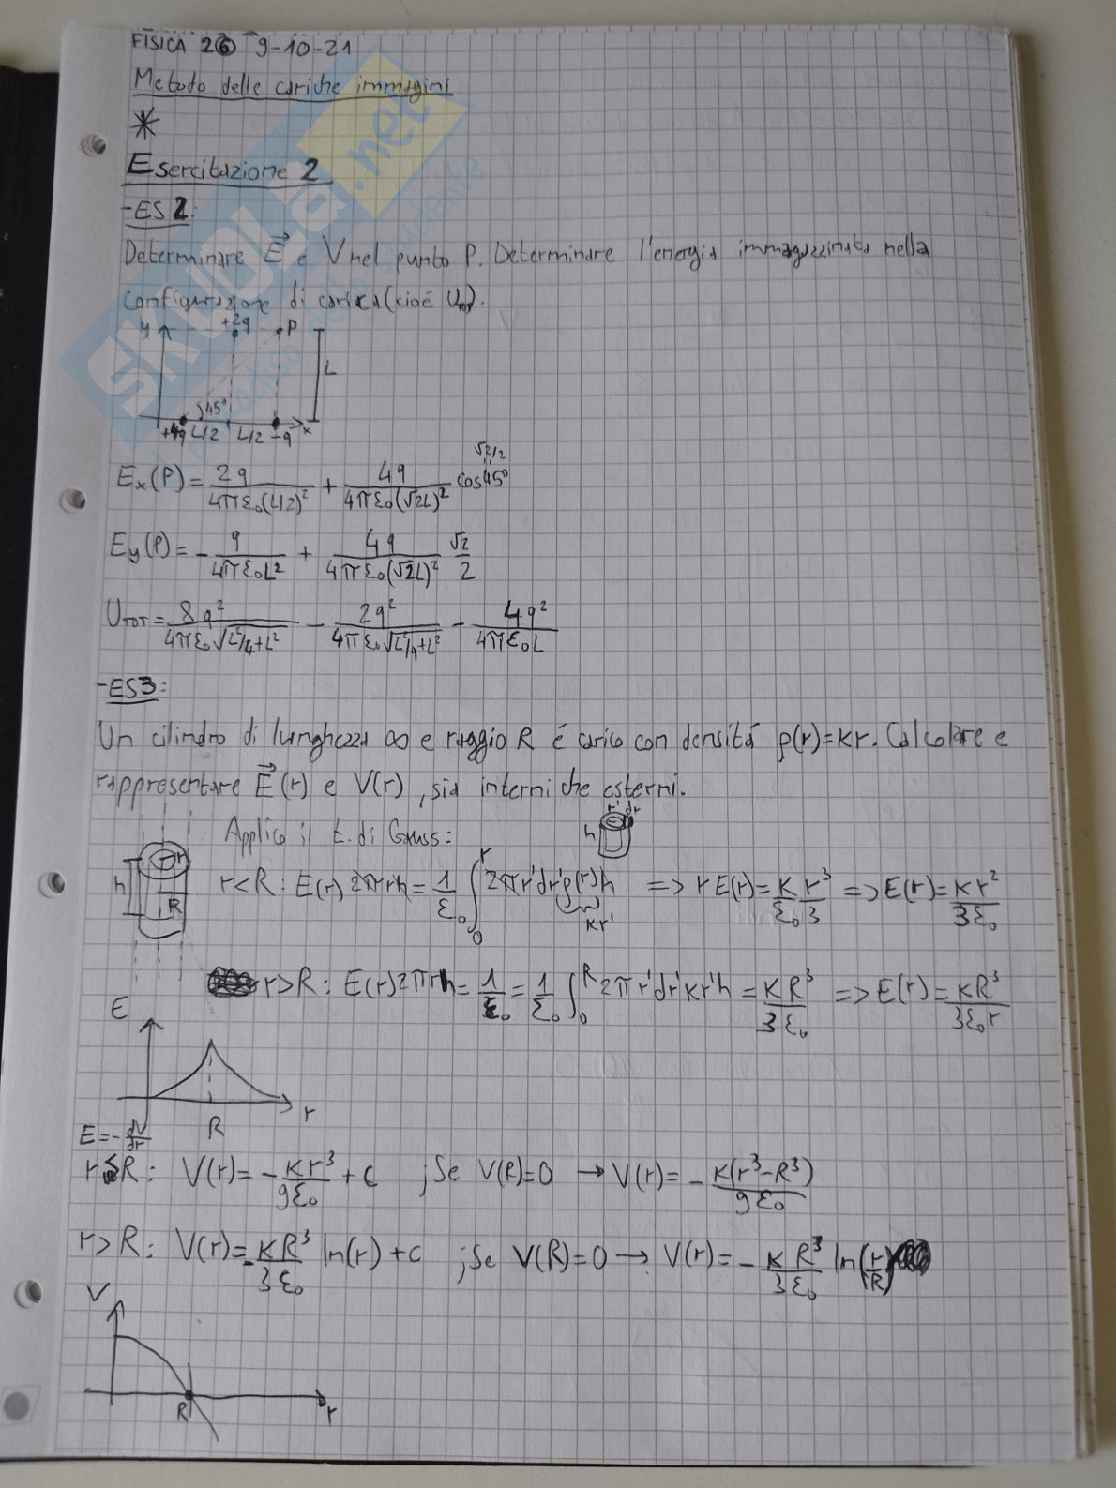 FISICA 2 6 9-10-21
Metodo delle cariche immagini
*
Esercitazione 2
-ES 2:
Determinare E⃗ e V nel punto P. Determinare l'energia immagazzinata nella
configurazione di carica (cioè U₀).
y +2q P
L
45°
+4q L/2 L/2 -q x
√2/2
Eₓ(P) = 2q/(4πε₀(L/2)²) + 4q/(4πε₀(√2L)²) cos45°
E_y(P) = - q/(4πε₀L²) + 4q/(4πε₀(√2L)²) √2/2
U_TOT = 8q²/(4πε₀√(L²/4+L²)) - 2q²/(4πε₀√(L²/4+L²)) - 4q²/(4πε₀L)
-ES3:
Un cilindro di lunghezza ∞ e raggio R è carico con densità ρ(r)=kr. Calcolare e
rappresentare E⃗(r) e V(r), sia interni che esterni.
Applico il t. di Gauss:
r' dr'
h
h r R
r<R: E(r) 2πrh = 1/ε₀ ∫₀^r 2πr'dr'ρ(r')h => rE(r) = k/ε₀ r³/3 => E(r) = kr²/(3ε₀)
kr'
r>R: E(r)2πrh = 1/ε₀ = 1/ε₀ ∫₀^R 2πr'dr'kr'h = kR³/(3ε₀) => E(r) = kR³/(3ε₀r)
E
r
R
E = - dV/dr
r≤R: V(r) = - kr³/(9ε₀) + c ; Se V(R)=0 → V(r) = - k(r³-R³)/(9ε₀)
r>R: V(r) = - kR³/(3ε₀) ln(r) + c ; Se V(R)=0 → V(r) = - kR³/(3ε₀) ln(r/R)
V
R r
SKUOLA.net